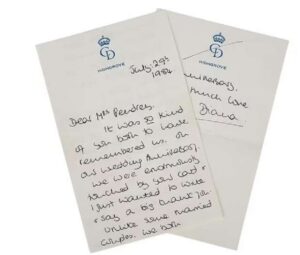 CD
HIGHGROVE
July. 29th
1984
Dear Mrs Pendrey,
It was so kind
of you both to have
remembered us on
our wedding Anniversary.
We were enormously
touched by your card &
I just wanted to write
& say a big thank you.
Unlike some married
couples, we both
CD
HIGHGROVE
Anniversary.
much love
Diana